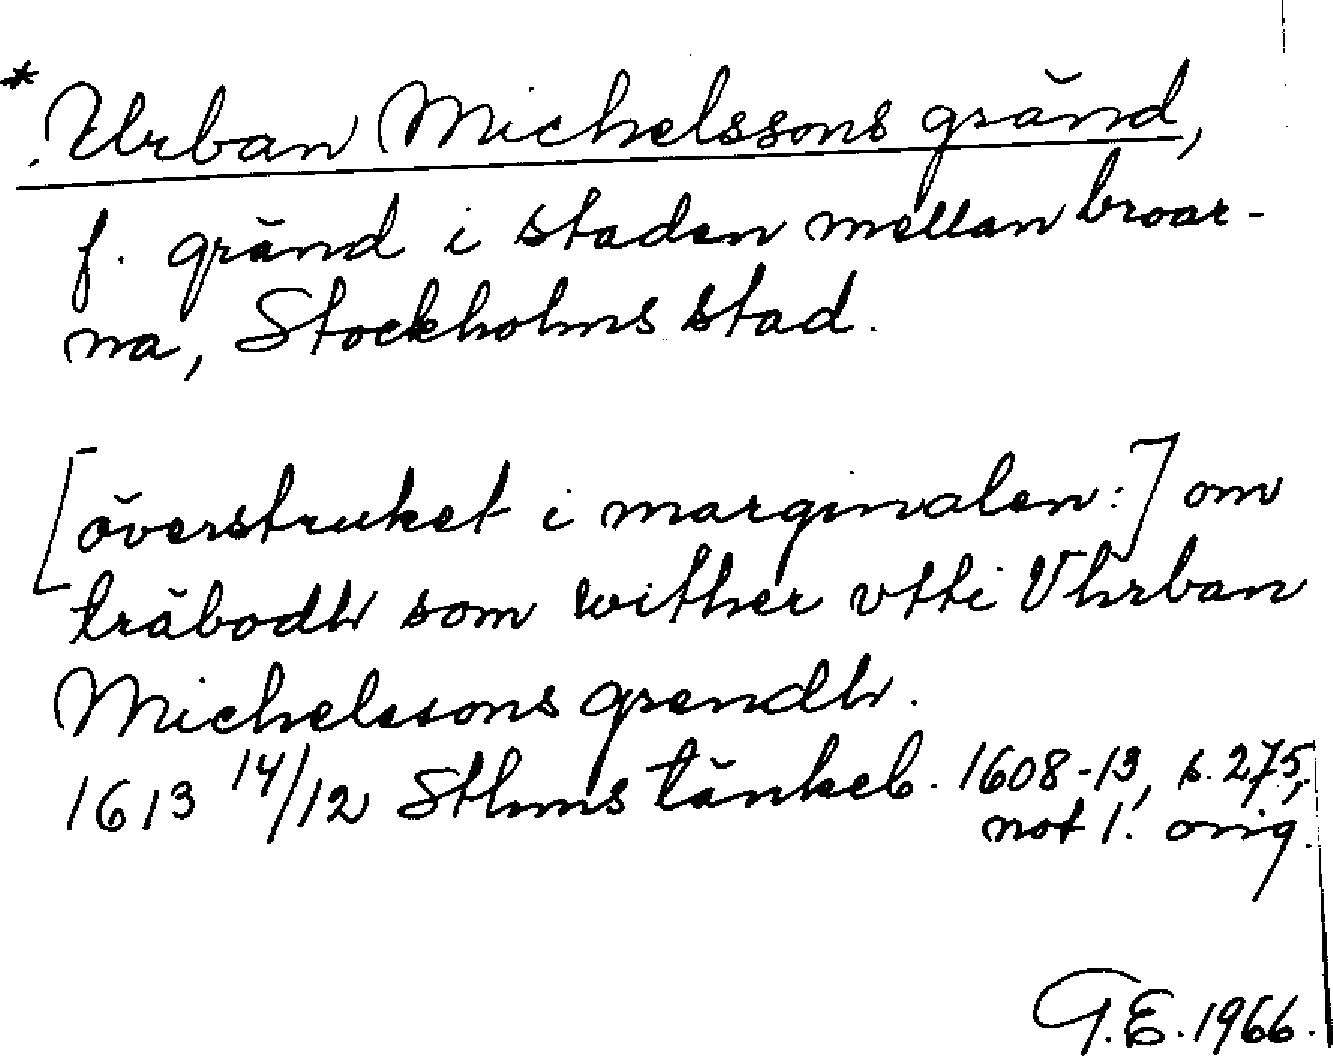 * Urban Michelssons gränd,
f. gränd i staden mellan broar-
na, Stockholms stad.
[överstruket i marginalen:] om
träbodh som wither vtti Vhrban
Michelssons grendh.
1613 14/12 Sthms tänkeb. 1608-13, s. 275,
not 1. orig.
G.E. 1966.